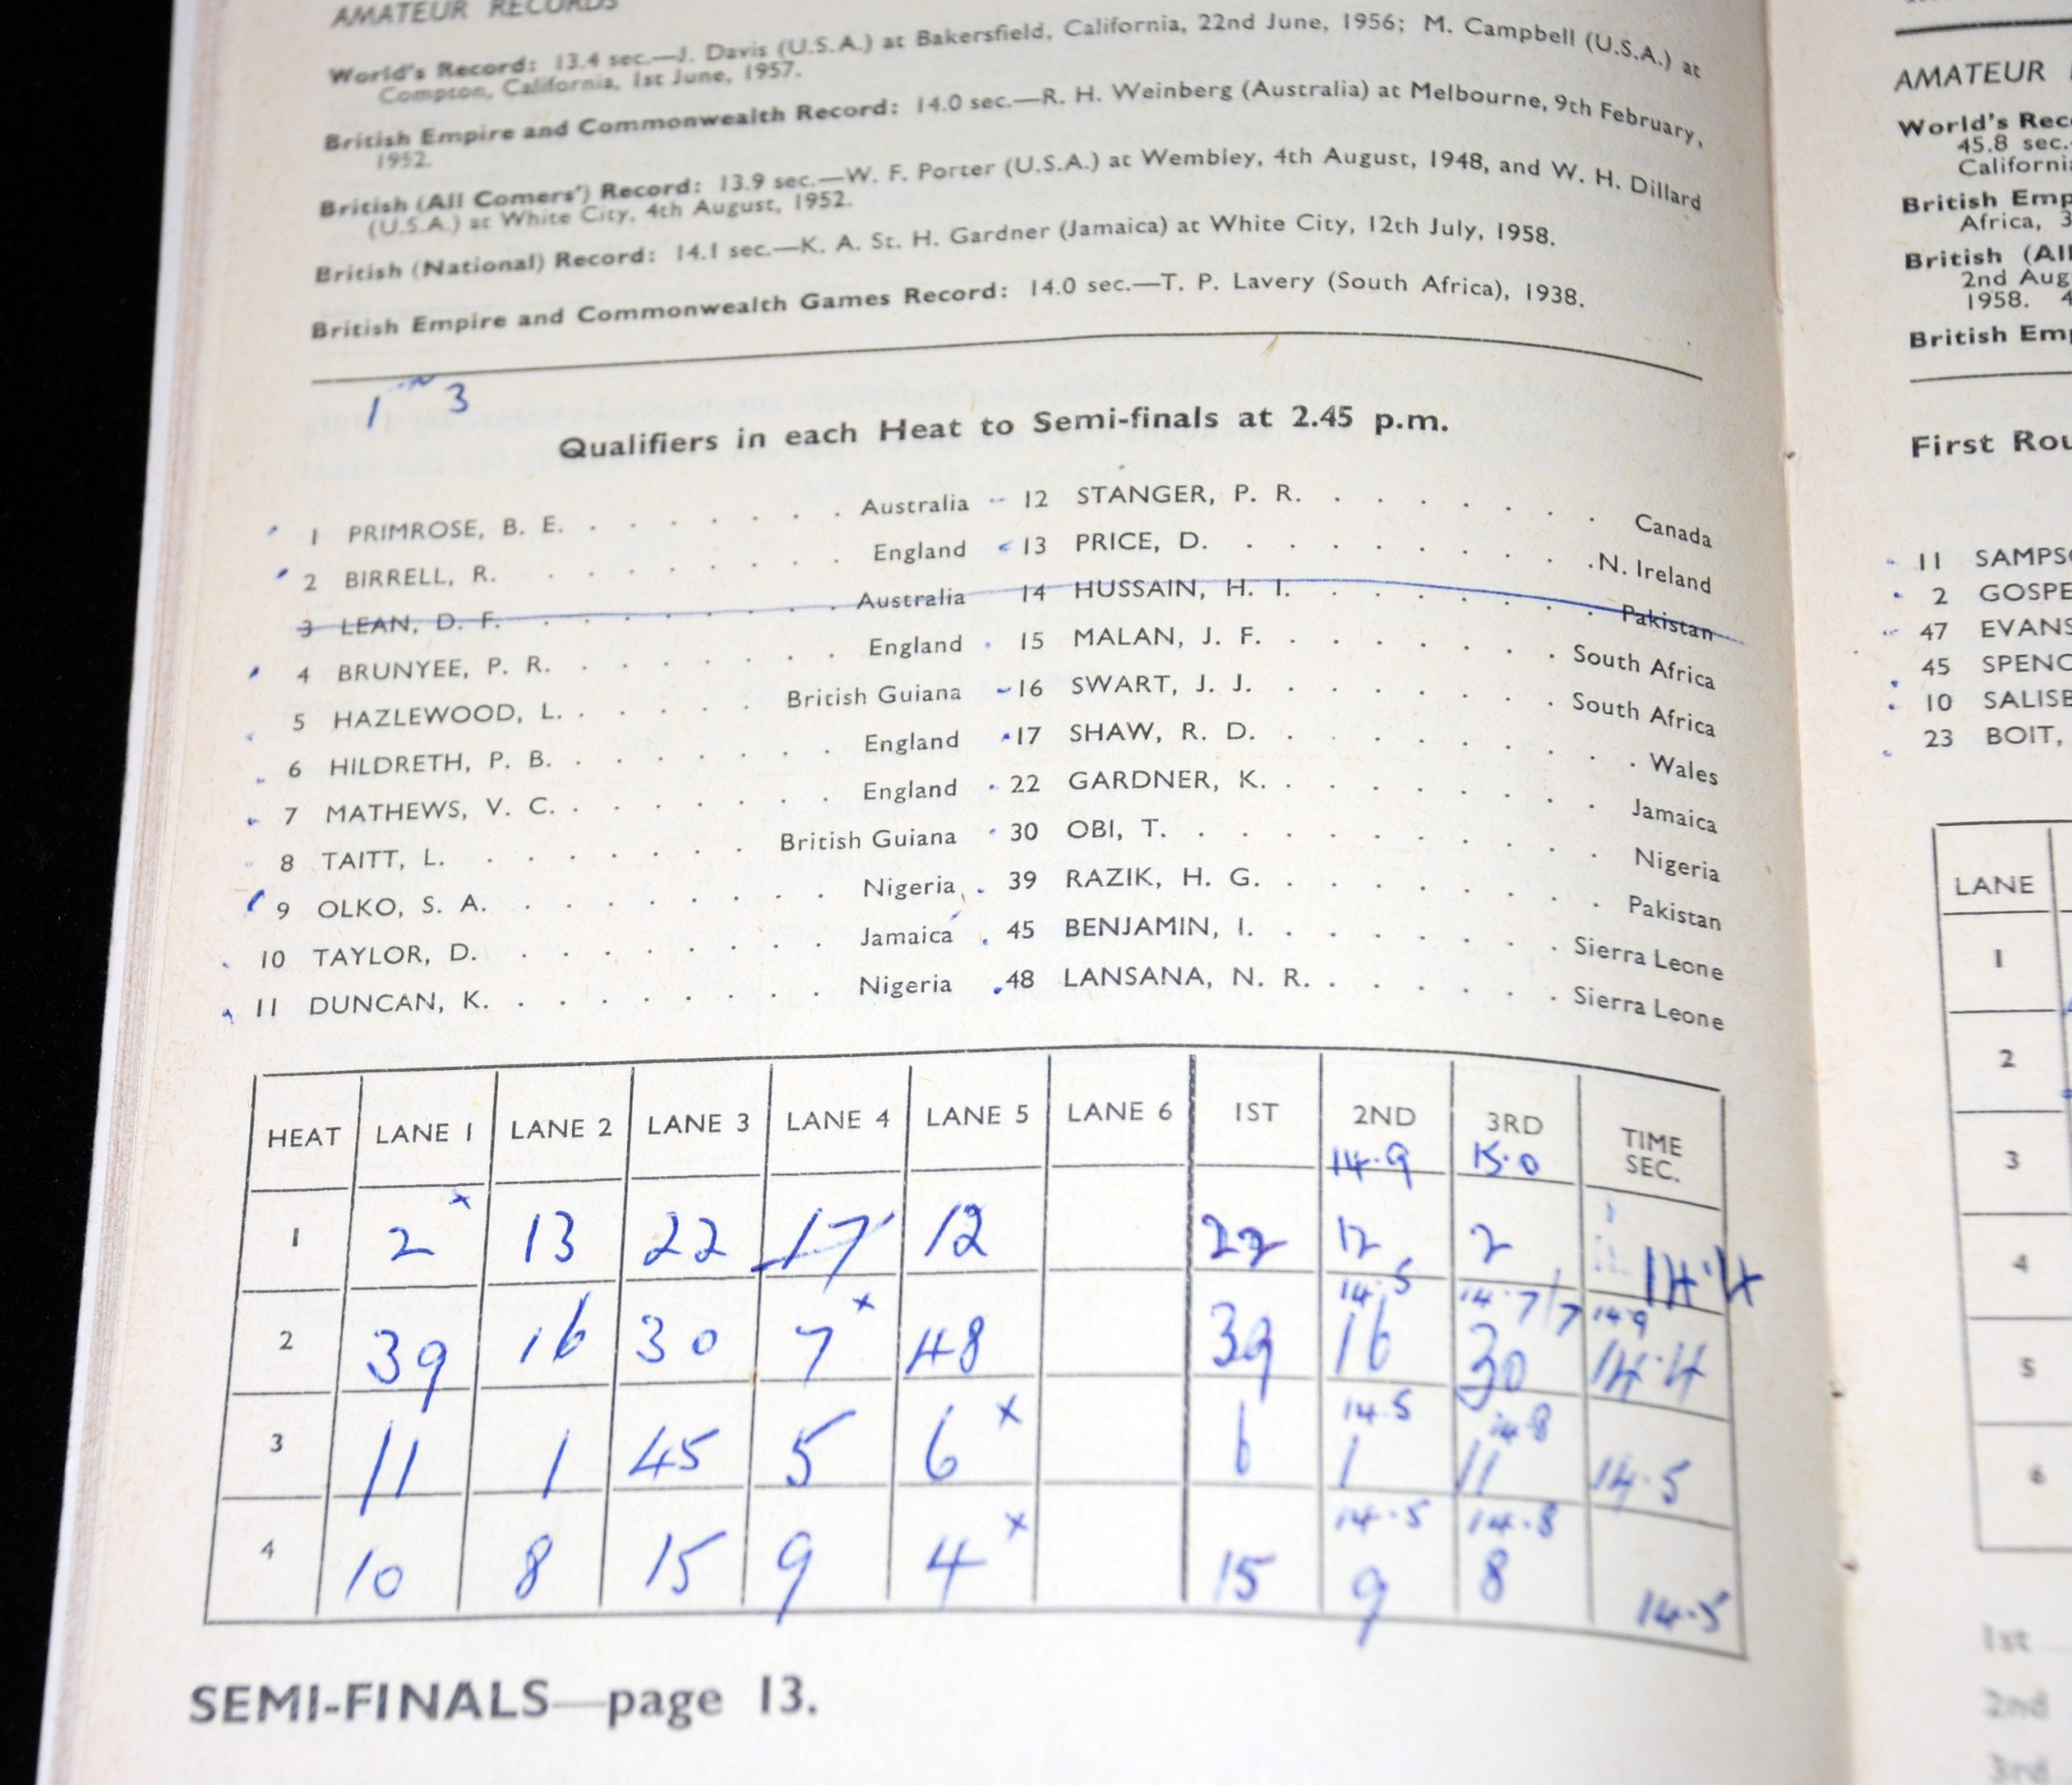 AMATEUR RECORDS
World's Record: 13.4 sec.—J. Davis (U.S.A.) at Bakersfield, California, 22nd June, 1956; M. Campbell (U.S.A.) at
Compton, California, 1st June, 1957.
British Empire and Commonwealth Record: 14.0 sec.—R. H. Weinberg (Australia) at Melbourne, 9th February,
1952.
British (All Comers') Record: 13.9 sec.—W. F. Porter (U.S.A.) at Wembley, 4th August, 1948, and W. H. Dillard
(U.S.A.) at White City, 4th August, 1952.
British (National) Record: 14.1 sec.—K. A. St. H. Gardner (Jamaica) at White City, 12th July, 1958.
British Empire and Commonwealth Games Record: 14.0 sec.—T. P. Lavery (South Africa), 1938.
1 3
Qualifiers in each Heat to Semi-finals at 2.45 p.m.
1 PRIMROSE, B. E. . . . . . . . Australia
2 BIRRELL, R. . . . . . . . England
3 LEAN, D. F. . . . . . . . Australia
4 BRUNYEE, P. R. . . . . . . . England
5 HAZLEWOOD, L. . . . . . British Guiana
6 HILDRETH, P. B. . . . . . . . England
7 MATHEWS, V. C. . . . . . . . England
8 TAITT, L. . . . . . . . British Guiana
9 OLKO, S. A. . . . . . . . . Nigeria
10 TAYLOR, D. . . . . . . . . Jamaica
11 DUNCAN, K. . . . . . . . . Nigeria
12 STANGER, P. R. . . . . . . . Canada
13 PRICE, D. . . . . . . . . . N. Ireland
14 HUSSAIN, H. I. . . . . . . . Pakistan
15 MALAN, J. F. . . . . . . . South Africa
16 SWART, J. J. . . . . . . . South Africa
17 SHAW, R. D. . . . . . . . . . Wales
22 GARDNER, K. . . . . . . . . Jamaica
30 OBI, T. . . . . . . . . . Nigeria
39 RAZIK, H. G. . . . . . . . . Pakistan
45 BENJAMIN, I. . . . . . . . Sierra Leone
48 LANSANA, N. R. . . . . . . Sierra Leone
HEAT LANE 1 LANE 2 LANE 3 LANE 4 LANE 5 LANE 6 1ST 2ND 3RD TIME SEC.
14.9 15.0
1 2 x 13 22 17 12 22 12 2 14.4
14.5 14.7 7 14.9
2 39 16 30 7 x 48 39 16 30 14.4
14.5 14.8
3 11 1 45 5 6 x 6 1 11 14.5
14.5 14.8
4 10 8 15 9 4 x 15 9 8 14.5
SEMI-FINALS—page 13.
AMATEUR
World's Rec
45.8 sec.
Californi
British Emp
Africa, 3
British (All
2nd Aug
1958. 4
British Em
First Rou
11 SAMPS
2 GOSPE
47 EVANS
45 SPENC
10 SALISB
23 BOIT,
LANE
1
2
3
4
5
6
1st
2nd
3rd